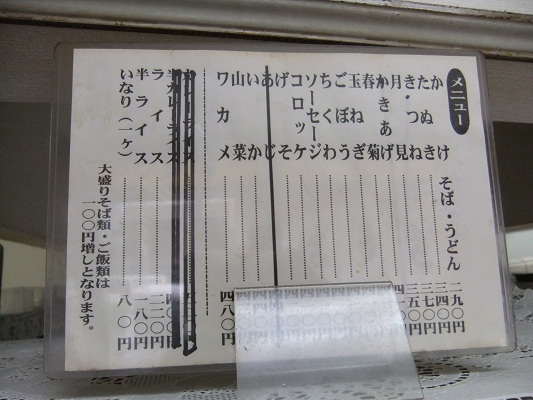 メニュー
そば・うどん
かけ 二九〇円
たぬき 三四〇円
きつね 三七〇円
月見 三五〇円
かきあげ
春菊
玉ねぎ
ごぼう
ちくわ
ソーセージ
コロッケ
げそ
あじ
いか
山菜
ワカメ 四八〇円
カレーライス
半カレーライス
ライス
半ライス 一八〇円
いなり(一ヶ) 八〇円
大盛りそば類・ご飯類は
一〇〇円増しとなります。